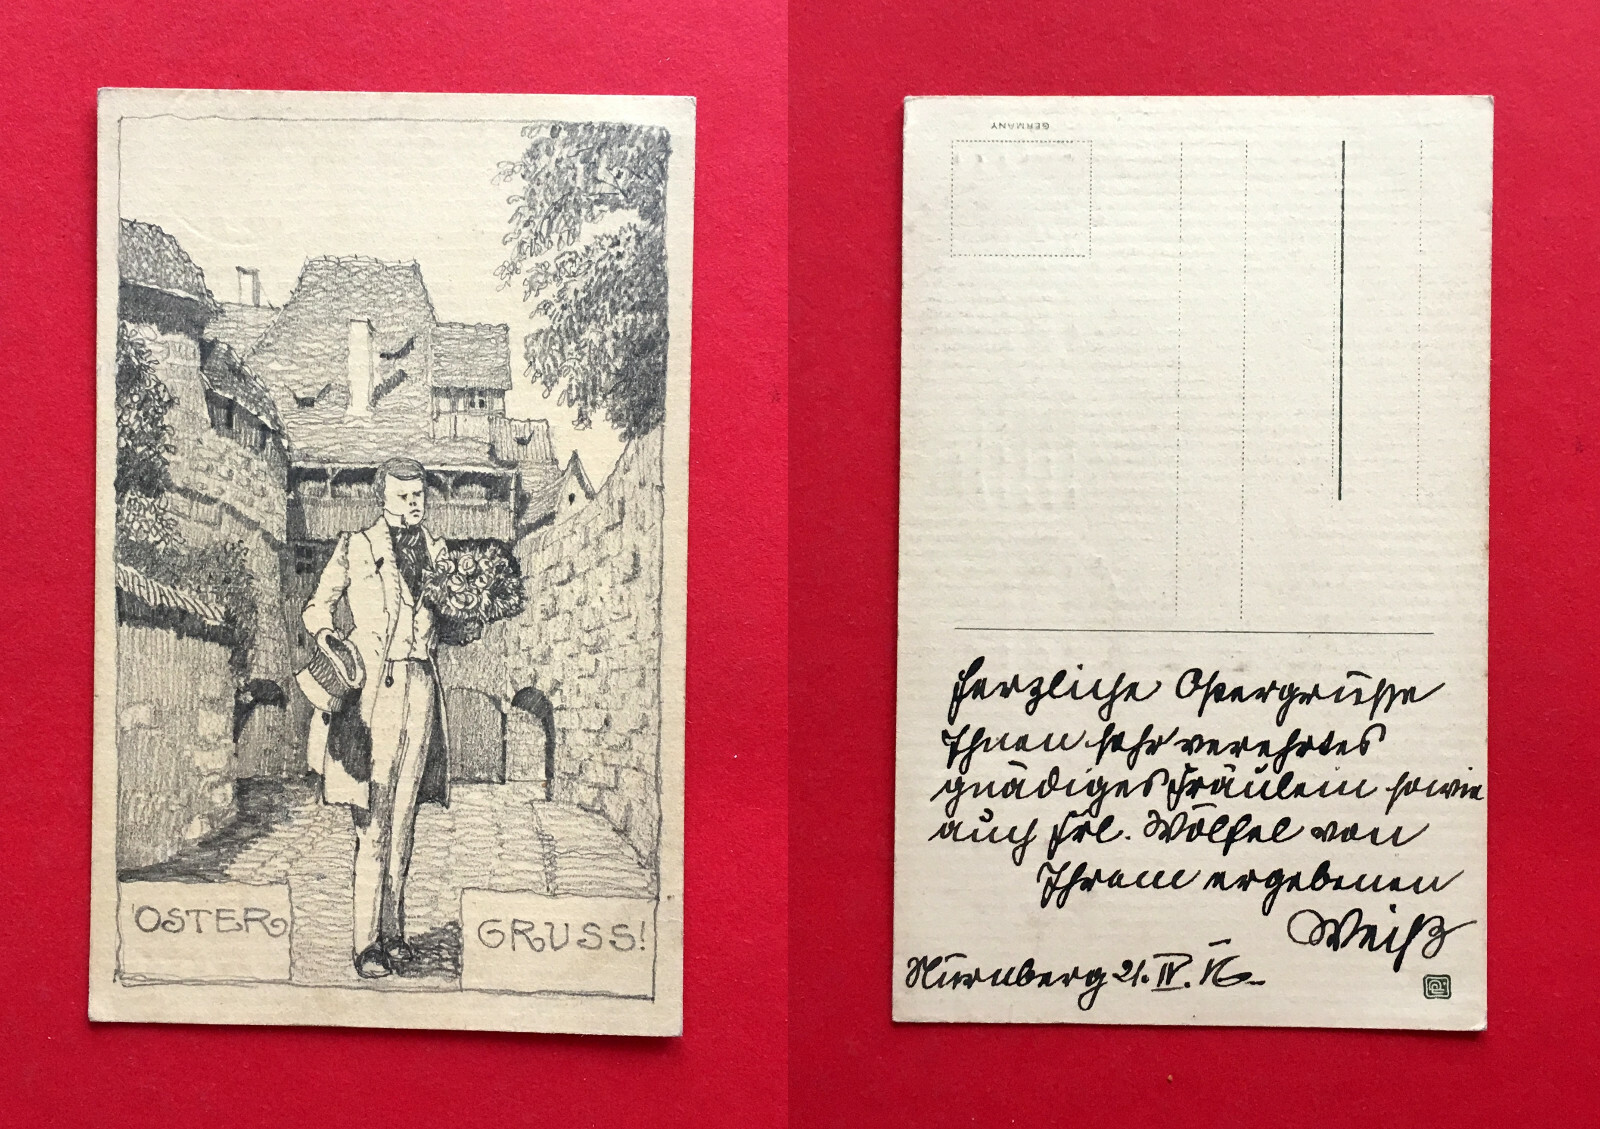 OSTER
GRUSS!
GERMANY
Herzliche Ostergrüsse
Ihnen sehr verehrtes
gnädiges Fräulein sowie
auch Frl. Wölfel von
Ihrem ergebenen
Weiß
Nürnberg 21. IV. 16.